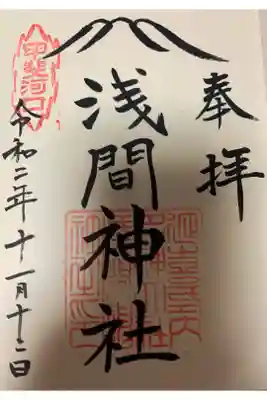 奉拝
浅間神社
令和二年十一月十二日